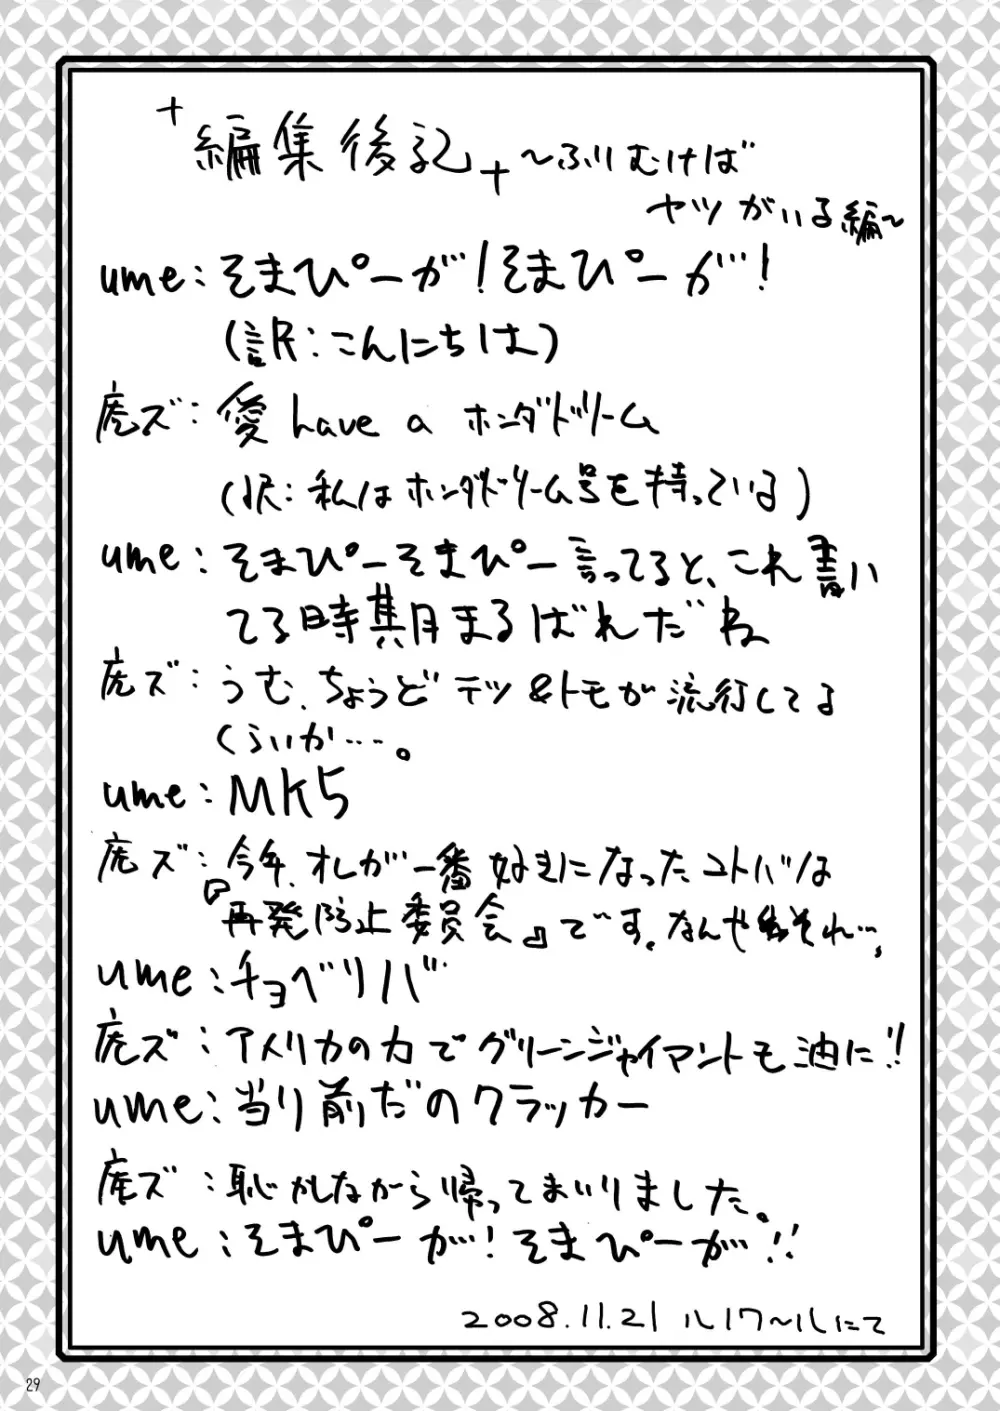 +編集後記+ ～ふりむけば
ヤツがいる編～
ume：そまぴーが！そまぴーが！
(訳：こんにちは)
虎ズ：愛 have a ホンダドリーム
(訳：私はホンダドリーム号を持っている)
ume：そまぴーそまぴー言ってると、これ書い
てる時期まるばれだね
虎ズ：うむ、ちょうどテツ&トモが流行してる
くらいか…。
ume：MK5
虎ズ：今年、オレが一番好きになったコトバは
『再発防止委員会』です。なんやそれ…。
ume：チョベリバ
虎ズ：アメリカの力でグリーンジャイアントも油に!!
ume：当り前だのクラッカー
虎ズ：恥かしながら帰ってまいりました。
ume：そまぴーが！そまぴーが!!
2008.11.21 ルノワ～ルにて
29